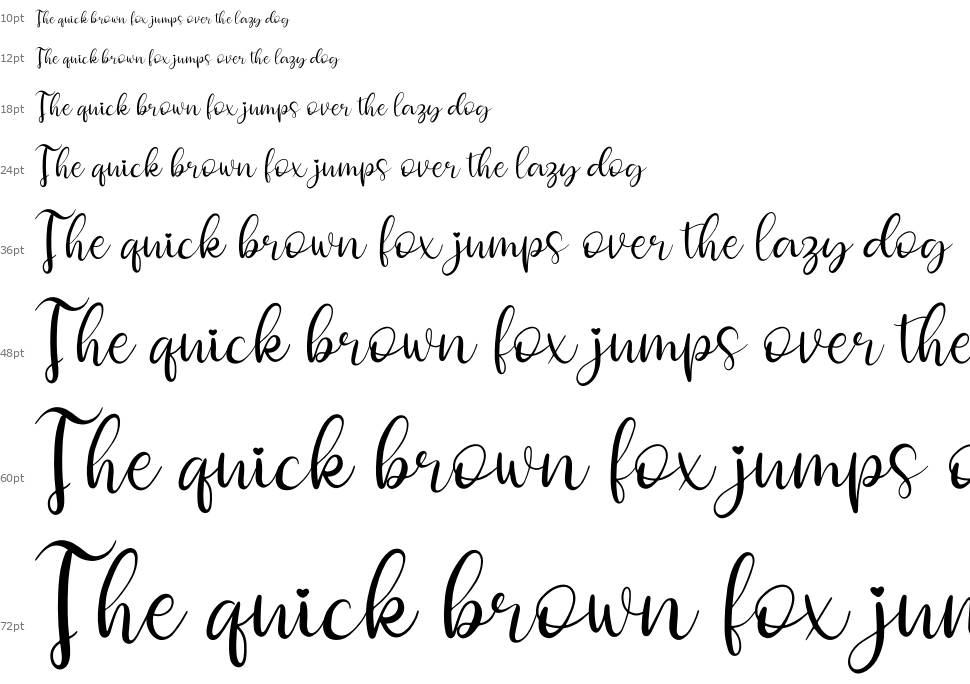 10pt The quick brown fox jumps over the lazy dog
12pt The quick brown fox jumps over the lazy dog
18pt The quick brown fox jumps over the lazy dog
24pt The quick brown fox jumps over the lazy dog
36pt The quick brown fox jumps over the lazy dog
48pt The quick brown fox jumps over the
60pt The quick brown fox jumps o
72pt The quick brown fox jum